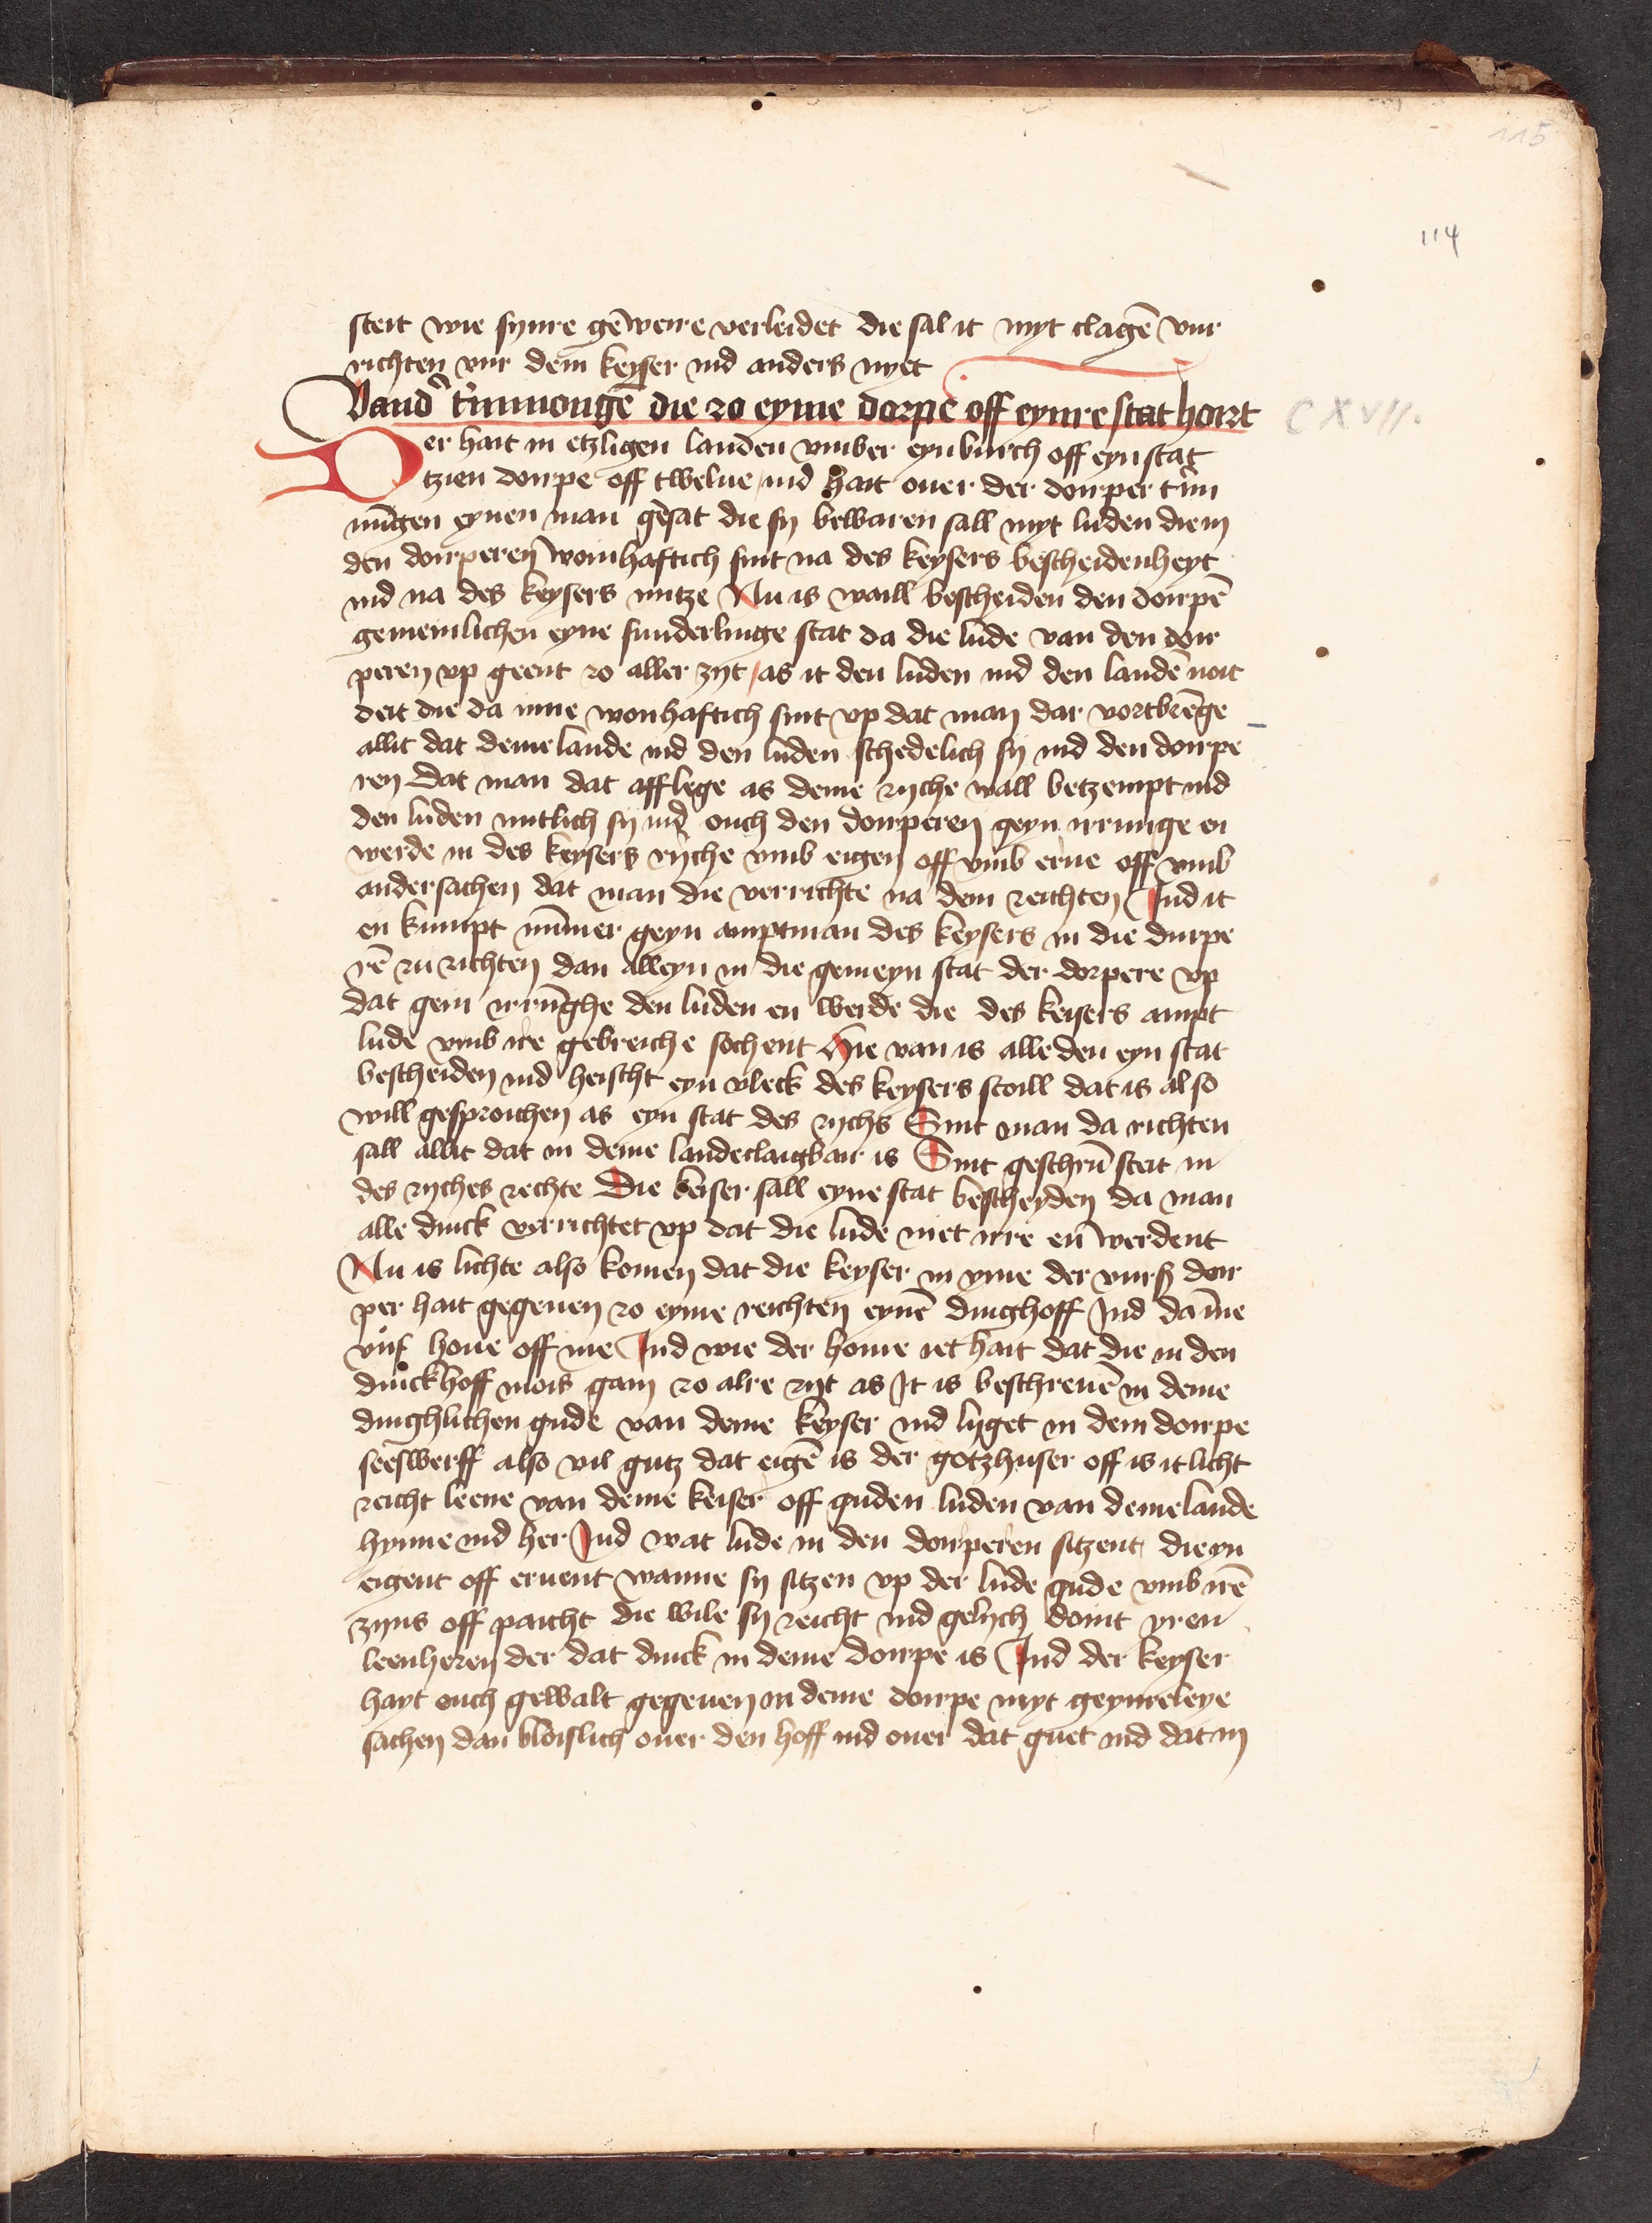 115
114
steit wie synre gēweire verleidet die sal it myt clagē vur
richten vur dem keyser ind anders nyet
Vand' t'mmonge die zo eyme dorpe off eynre stat hoirt
CXVII.
Der hait in etzligen landen vmber eyn burch off eyn stat
tzien dorpe off twelue ind hait ouer der dorper t'm
nūgen eynen man gesat die sy bewaren sall myt luden die in
den dorperen woinhaftich sint na des keysers bescheidenheyt
ind na des keysers nutze Nu is waill bescheiden den dorpē
gemeinlichen eyne sunderlinge stat da die lude van den dor
peren vp geent zo aller zyt / as it den luden ind den landē noit
deit die da inne wonhaftich sint vp dat man dar vortbrēge
allit dat deme lande ind den luden schedelich sy ind den dorpe
ren dat man dat aff lege as deme ryche wall betzempt ind
den luden nutlich sy ind ouch den dorperen geyn irrunge en
werde in des keysers ryche vmb eigen off vmb erue off vmb
ander sachen dat man die verrichte na dem reichten Ind it
en kumpt nūmer geyn amptman des keysers in die durpe
rē zu richten dan alleyn in die gemeyn stat der dorpere vp
dat gein irrūghe den luden en werde die des keisers ampt
lude vmb ire gebreiche sochent Hie van is alle den eyn stat
bescheiden ind heischt eyn vleck des keysers stoill dat is also
will gesproichen as eyn stat des rychs Sint man da richten
sall allit dat in deme lande claigbair is Sint geschrū steit in
des ryches rechte Die keiser sall eyne stat bescheyden da man
alle dinck verrichtet vp dat die lude niet irre en werdent
Nu is lichte also komen dat die keyser in yme der vurß dor
per hait gegeuen zo eyme reichten eynē dinghoff Ind da inne
vunf houe off me Ind wie der houe iet hait dat die in den
dinckhoff mois gain zo alre zyt as It is beschreuē in deme
dinghlichen gude van deme keyser ind lyget in dem dorpe
seeswerff also vil gutz dat eigē is der gotzhuser off is it licht
reicht leene van deme keiser off guden luden van deme lande
hynne ind her Ind wat lude in den dorperen sitzent die yn
eigent off eruent wanne sy sitzen vp der lude gude vmb irē
zyns off paicht die wile sy reicht ind gelych doint yren
leenheren der dat dinck in deme dorpe is Ind der keyser
hayt ouch gewalt gegeuen in deme dorpe myt geynreleye
sachen dan bloislich ouer den hoff ind ouer dat guet ind dat in